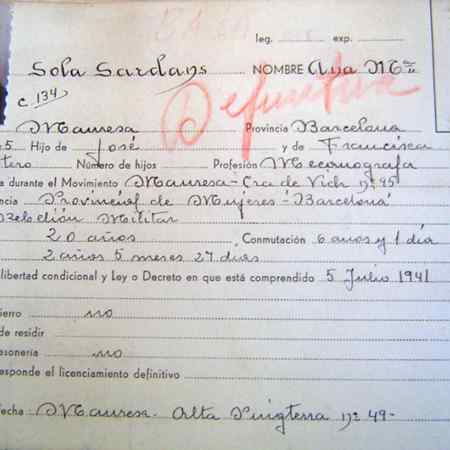 BAJA
leg. exp.
Sola Sardans NOMBRE Ana Mª
C. 134
Definitiva
Manresa Provincia Barcelona
5 Hijo de José y de Francisca
tero Número de hijos Profesión Mecanografa
a durante el Movimiento Manresa - Cra de Vich nº 95
ncia Provincial de Mujeres - Barcelona
Rebelión Militar
20 años Conmutación 6 años y 1 día
2 años 5 meses 27 días
libertad condicional y Ley o Decreto en que está comprendido 5 Julio 1941
ierro no
de residir
asonería no
esponde el licenciamiento definitivo
fecha Manresa. Alta Puigterra nº 49-